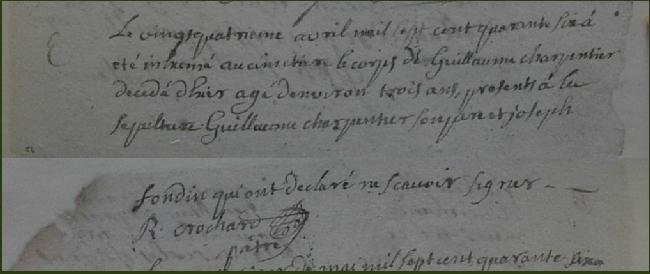 Le vingtquatrieme avril mil sept cent quarante six à
eté inhumé au cimetiere le corps de Guillaume charpentier
decedé d'hier agé denviron trois ans, presents à la
sepulture Guillaume charpentier son pere et joseph
fondin qui ont declaré ne scavoir signer
R. Crochard
pātre
mai mil sept cent quarante six